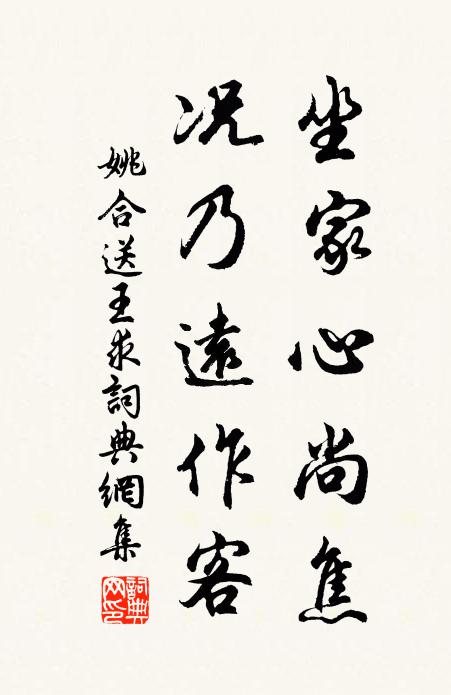 坐家心尚焦
况乃遠作客
姚合送王求詞典網集
詞典網印